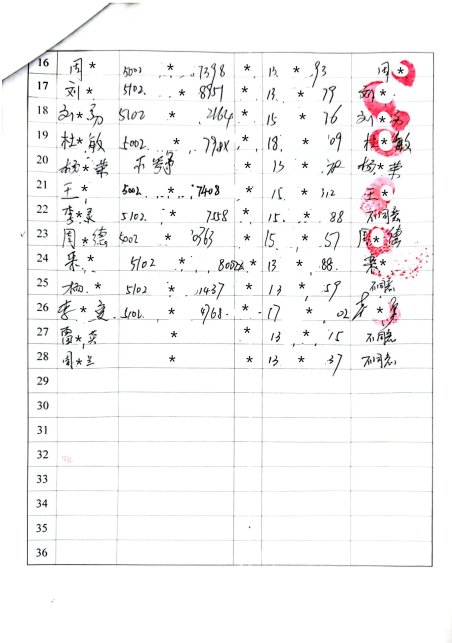 16 周* 5002 * 7398 * 13 * 93 周*
17 刘* 5102 * 8951 * 13 * 79 刘*
18 刘*芬 5102 * 2164 * 15 * 76 刘*芬
19 杜*敏 5002 * 798X * 18 * 09 杜*敏
20 杨*荣 * 13 * 杨*荣
21 王* 5002 * 7408 * 15 * 312 王*
22 李* 5102 * 7558 * 15 * 88 不同意
23 周*德 5002 * 0363 * 15 * 57 周*德
24 5102 * 800X * 13 * 88
25 杨* 5102 * 1437 * 13 * 59 不同意
26 李* 5102 * 4768 * 17 * 02 李*
27 雷*英 * * 13 * 15 不同意
28 周*兰 * * 13 * 37 不同意
29
30
31
32
33
34
35
36